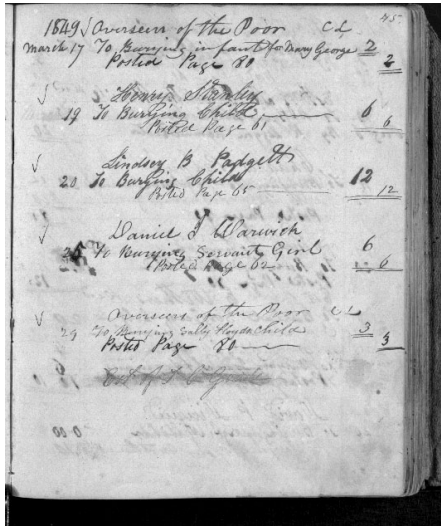 45
1849 Overseers of the Poor
March 17 To Burying infant for Mary George 2
Posted Page 80 2
Henry Stanley
19 To Burying Child 6
Posted Page 61 6
Lindsey B Padgett
20 To Burying Child 12
Posted Page 65 12
Daniel J Warwich
25 To Burying Servant Girl 6
Posted Page 62 6
Overseers of the Poor
29 To Burying Sally Floyds child 3
Posted Page 80 3